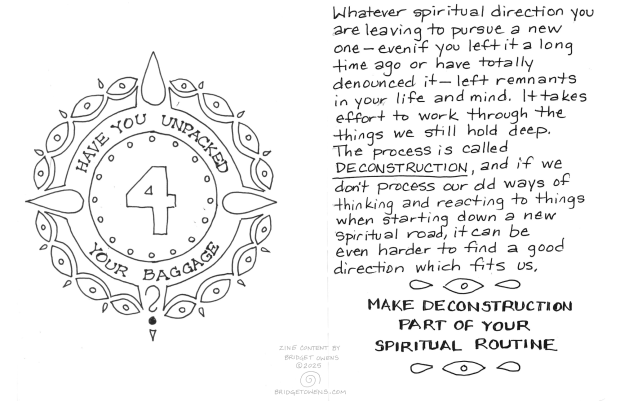 HAVE YOU UNPACKED
4
YOUR BAGGAGE
?
Whatever spiritual direction you
are leaving to pursue a new
one—even if you left it a long
time ago or have totally
denounced it—left remnants
in your life and mind. It takes
effort to work through the
things we still hold deep.
The process is called
DECONSTRUCTION, and if we
don't process our old ways of
thinking and reacting to things
when starting down a new
spiritual road, it can be
even harder to find a good
direction which fits us.
MAKE DECONSTRUCTION
PART OF YOUR
SPIRITUAL ROUTINE
ZINE CONTENT BY
BRIDGET OWENS
©2025
BRIDGETOWENS.COM